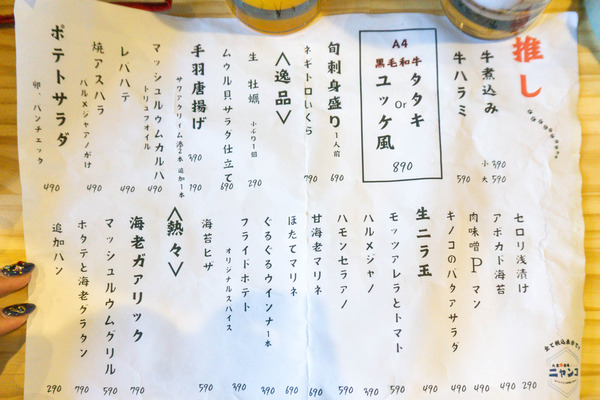 推し
牛煮込み 小 390 大 590
牛ハラミ 590
A4
黒毛和牛
タタキ
or
ユッケ風
890
旬刺身盛り 1人前 690
ネギトロいくら 790
＜逸品＞
生牡蠣 小ぶり1個 290
ムウル貝サラダ仕立て 690
手羽唐揚げ 2本 390 追加1本 190
マッシュルウムカルパ 490
トリュフオイル
レバパテ 490
焼アスパラ 490
パルメジャアノがけ
ポテトサラダ 490
卵、パンチェッタ
セロリ浅漬け 290
アボカド海苔 490
肉味噌Pマン 490
キノコのバタアサラダ 490
生ニラ玉 490
モッツァレラとトマト 590
パルメジャノ 390
ハモンセラアノ 590
甘海老マリネ 690
ほたてマリネ 690
ぐるぐるウインナ 1本 390
フライドポテト 390
オリジナルスパイス
海苔ピザ 590
＜熱々＞
海老ガアリック 790
マッシュルウムグリル 590
ホタテと海老グラタン 790
追加パン 290
全て税込表示です
ニャンコ